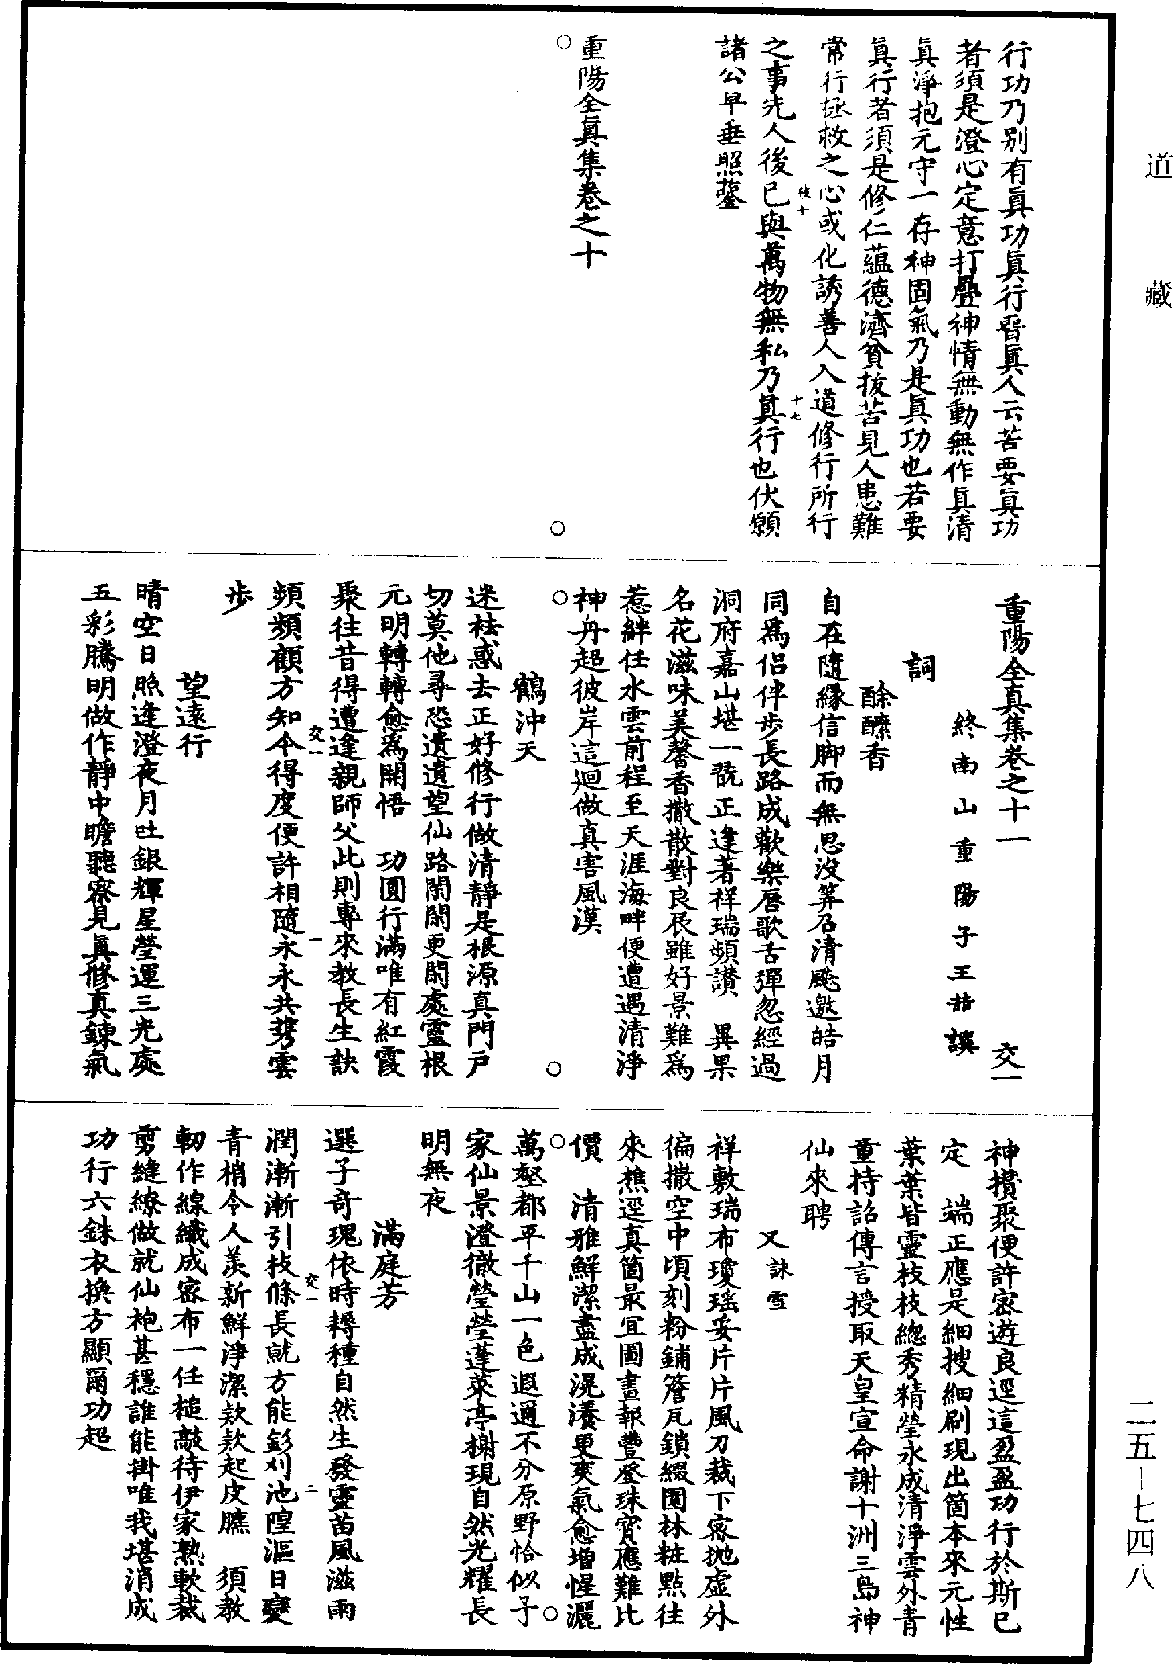 道藏
行功乃别有眞功眞行晉眞人云若要眞功
者須是澄心定意打疊神情無動無作眞清
眞淨抱元守一存神固氣乃是眞功也若要
眞行者須是修仁蘊德濟貧拔苦見人患難
常行拯救之心或化誘善人入道修行所行
之事先人後己與萬物無私乃眞行也伏願
諸公早垂照鑒
重陽全眞集卷之十
重陽全真集卷之十一 交一
終南山重陽子王嚞譔
詞
酴醾香
自在隨緣信脚而無思没筭召清飈邀皓月
同爲侣伴步長路成歡樂唇歌舌彈忽經過
洞府嘉山堪一翫正逢著祥瑞頻讃 異果
名花滋味美馨香撒散對良辰雖好景難爲
惹絆任水雲前程至天涯海畔便遭遇清淨
神丹超彼岸這廻做真害風漢
鶴沖天
迷袪惑去正好修行做清靜是根源真門戶
切莫他尋恐遺遺望仙路閑閑更閑處靈根
元明轉轉愈爲開悟 功圓行滿唯有紅霞
聚往昔得遭逢親師父此則專來教長生訣
頻頻顧方知今得度便許相隨永永共携雲
步
望遠行
晴空日照逢澄夜月吐銀輝星瑩運三光處
五彩騰明做作靜中瞻聽察見眞修真鍊氣
神攢聚便許密遊良逕這盈盈功行於斯已
定 端正應是細搜細刷現出箇本來元性
葉葉皆靈枝枝總秀精瑩永成清淨雲外青
童持詔傳言授取天皇宣命謝十洲三島神
仙來聘
又 詠雪
祥敷瑞布瓊瑤妥片片風刀裁下密拋虛外
偏撒空中頃刻粉鋪簷瓦鎖綴園林粧點往
來樵逕真箇最宜圖畫報豐登珠寳應難比
價 清雅鮮潔盡成滉瀁更爽氣愈增惺灑
萬壑都平千山一色遐邇不分原野恰似予
家仙景澄徹瑩瑩蓬萊亭榭現自然光耀長
明無夜
滿庭芳
選子奇瑰依時耨種自然生發靈苗風滋雨
潤漸漸引枝條長就方能釤刈池隍漚日變
青梢令人羨新鮮淨潔欵欵起皮臕 須教
韌作線纖成密布一任搥敲待伊家熟軟裁
剪縫繚做就仙袍甚穩誰能掛唯我堪消成
功行六銖衣換方顯爾功超
二五—七四八